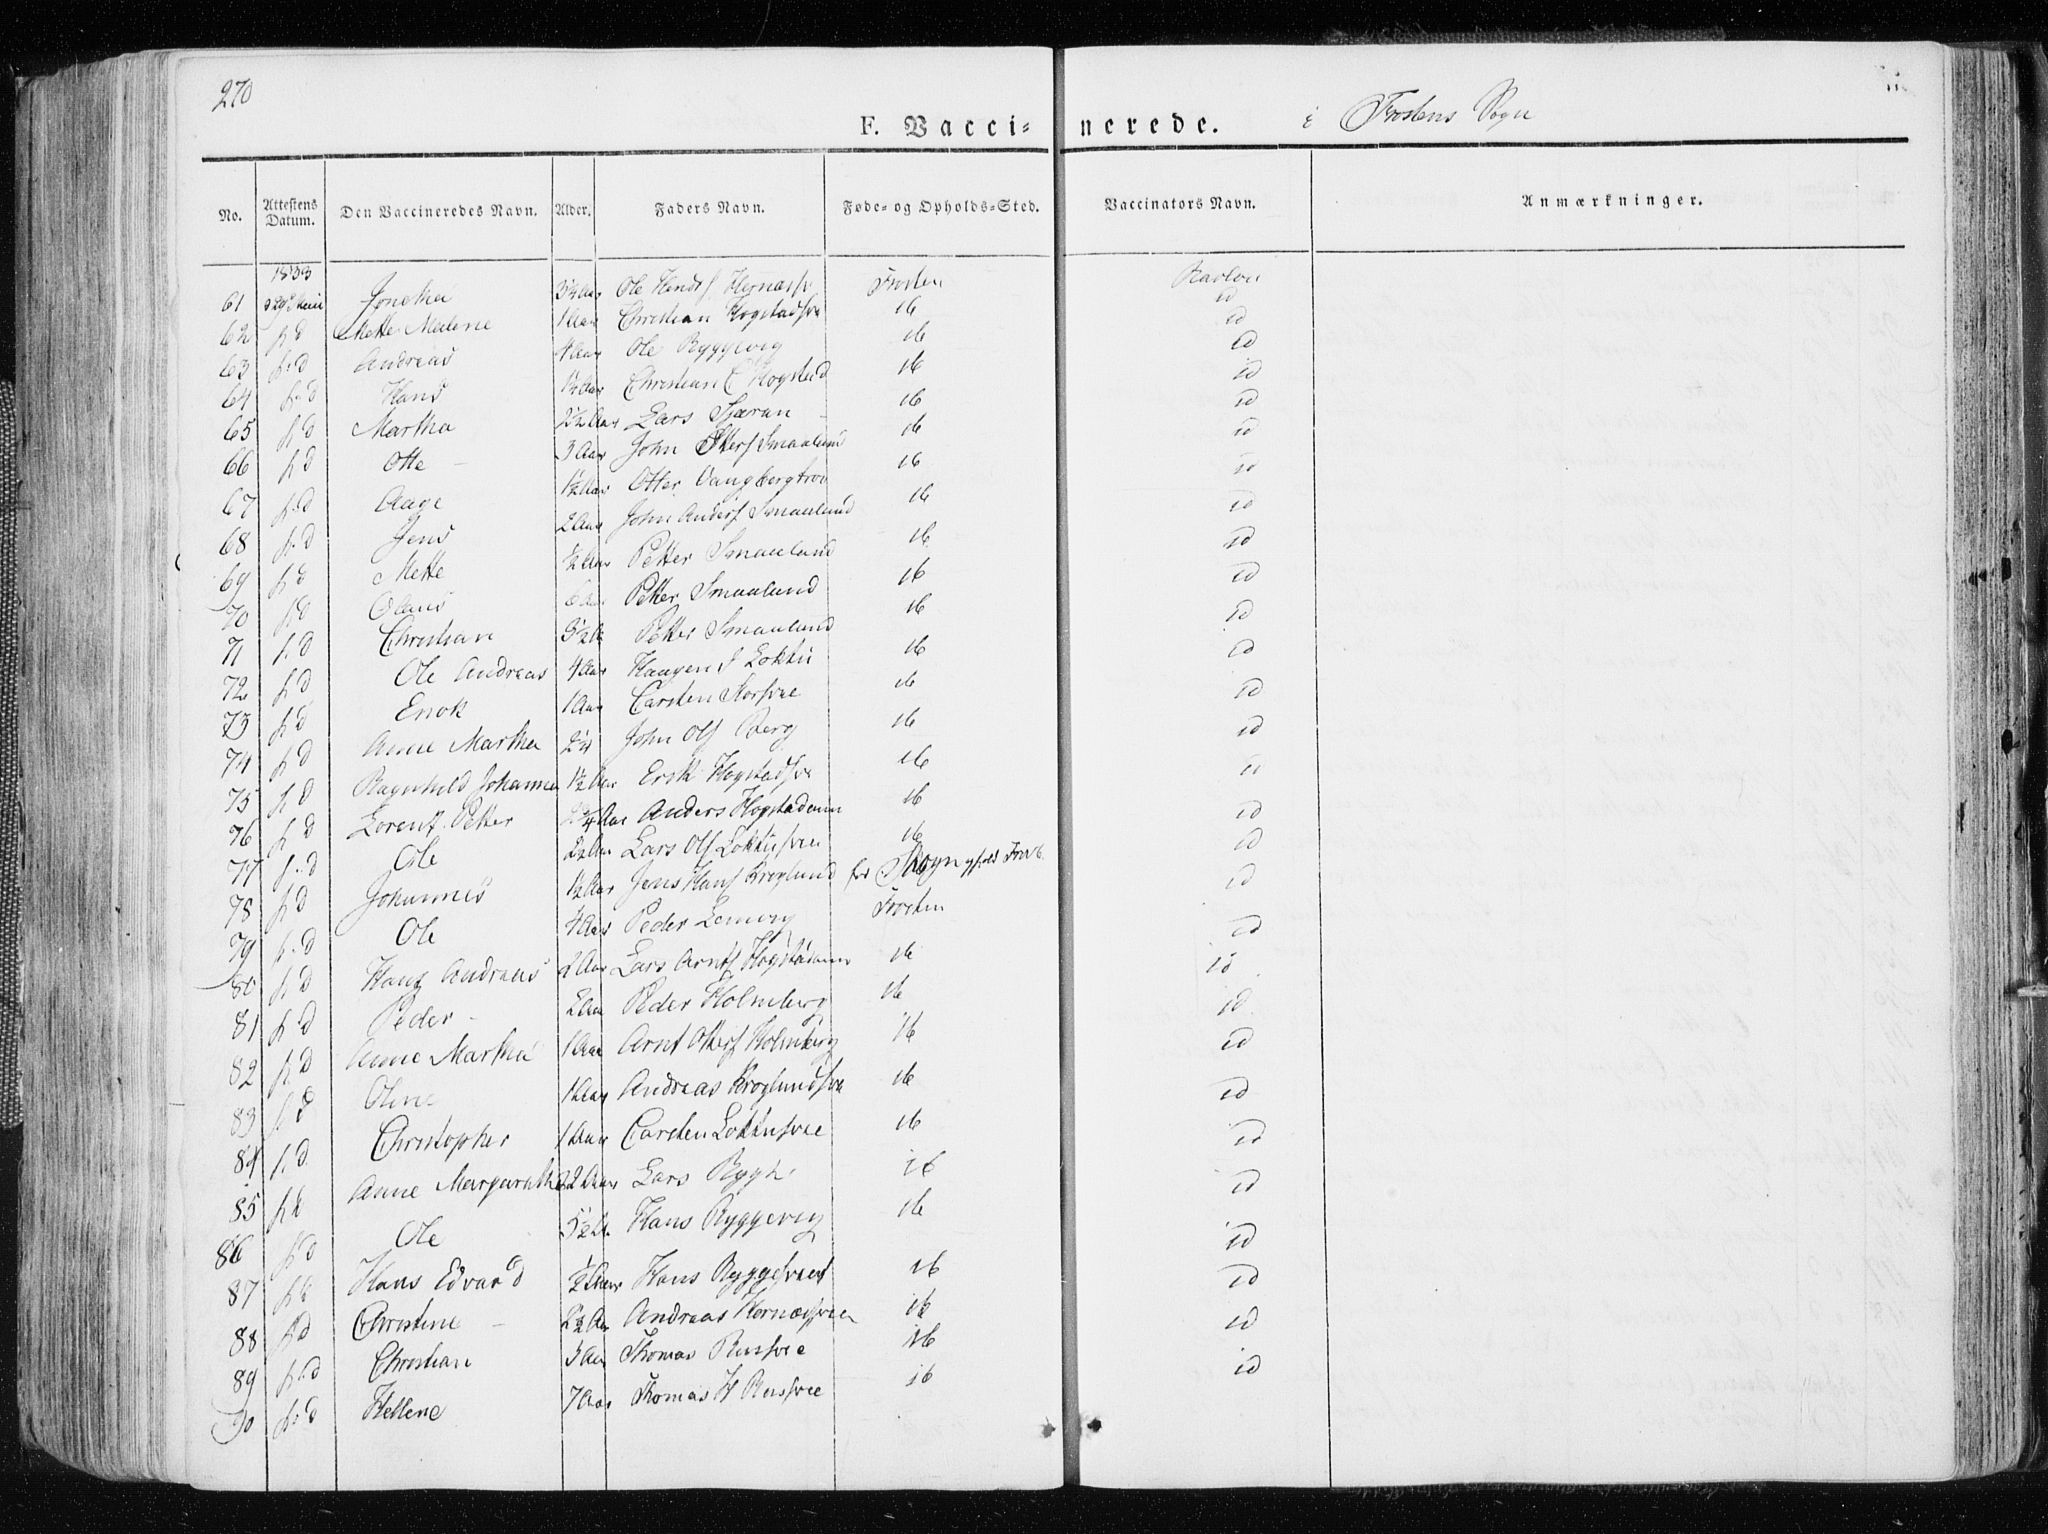 270
F. Vaccinerede. i Frostens Sogn
No. Attestens Datum. Den Vaccineredes Navn. Alder. Faders Navn. Føde- og Opholds-Sted. Vaccinators Navn. Anmærkninger.
1833
61 Jonetha 3¼ Aar Ole Frosten
62 f. d Mette Malene 1 Aar Christian Hogstadsve ib id
63 f. d Andreas 4 Aar Ole Ryggevig ib id
64 f. d Hans 1¼ Aar Christian C Hogstad ib id
65 f. d Martha 2½ Aar Lars Sjæran ib id
66 f. d Otte 3 Aar John Otters Smaalund ib id
67 f. d Aage 1½ Aar Otter Vangbergtrøe ib id
68 f. d Jens 2 Aar John Anders Smaalund ib id
69 f. d Mette ½ Aar Petter Smaalund ib id
70 f. d Olaus 6 Aar Petter Smaalund ib id
71 f. d Christian 3½ A Petter Smaalund ib id
72 f. d Ole Andreas 4 Aar Haagen J Loktu ib id
73 f. d Enok 1 Aar Carsten Korsvee ib id
74 f. d Anne Martha 2¼ John Ols Berg ib id
75 f. d Ragnhild Johanna 1½ Aar Erik Hogstadsve ib id
76 f. d Lorentz Petter 2¼ Aar Anders Hogstadaun ib id
77 f. d Ole 2½ Aar Lars Ols Loktusvee ib id
78 f. d Johannes 1½ Aar Jens Hans Kroglund Skogn id
79 f. d Ole 4 Aar Peder Lemvig Frosten id
80 f. d Hans Andreas 2 Aar Lars Arnts Hogstadaun ib id
81 f. d Peder 2 Aar Peder Holmberg ib id
82 f. d Anne Martha 1 Aar Arnt Otters Holmberg ib id
83 f. d Oline 1 Aar Andreas Kroglundsve ib id
84 f. d Christopher 1 Aar Carsten Loktusvee ib id
85 f. d Anne Margaretha 2 Aar Lars Rygh ib id
86 f. d Ole 5½ A Hans Ryggevig ib id
87 f. d Hans Edvard ½ Aar Hans Ryggesveet ib id
88 f. d Christine 2½ Aar Andreas Hernæssvee ib id
89 f. d Christian 3 Aar Thomas Russvee ib id
90 f. d Hellene 7 Aar Thomas H Russvee ib